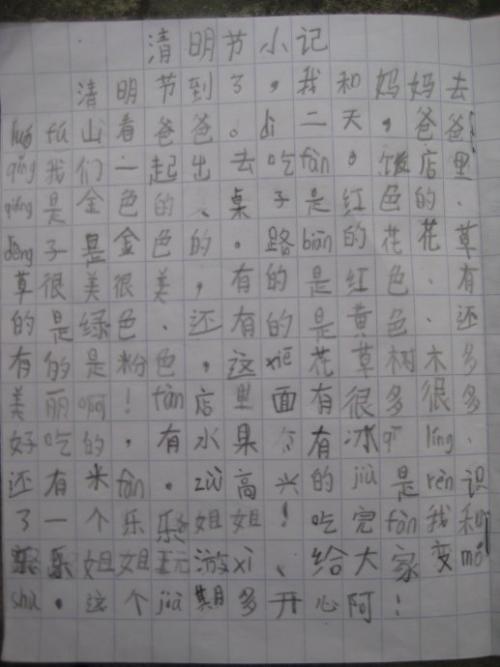 清明节小记
清明节到了，我和妈妈去
luó fú山看爸爸。dì二天，爸爸
qǐng我们一起出去吃fàn。饭店里
qiáng是金色的、桌子是红色的、
dèng子是金色的。路biān的花花草
草很美很美，有的是红色、有
的是绿色、还有的是黄色、还
有的是粉色，这xiē花草树木多
美丽啊！fàn店里面有很多很多
好吃的，有水果、有冰qí líng、
还有米fàn。zuì高兴的jiù是rèn识
了一个乐乐姐姐！吃完fàn我和
乐乐姐姐玩游xì、给大家变mó
shù。这个jià期多开心阿！